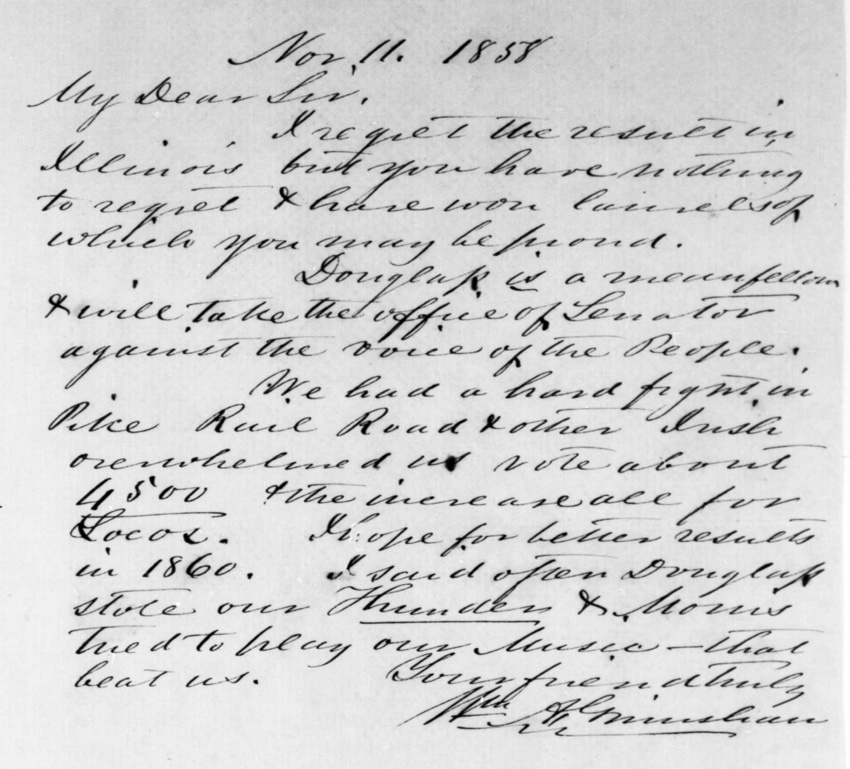 Nov 11. 1858
My Dear Sir.
I regret the result in
Illinois but you have nothing
to regret & have won laurels of
which you may be proud.
Douglass is a mean fellow
& will take the office of Senator
against the voice of the People.
We had a hard fight in
Pike Rail Road & other Irish
overwhelmed us vote about
4500 & the increase all for
Locos. I hope for better results
in 1860. I said often Douglass
stole our Thunder & Morris
tried to play our Music — that
beat us. Your friend truly
Wm A Grimshaw